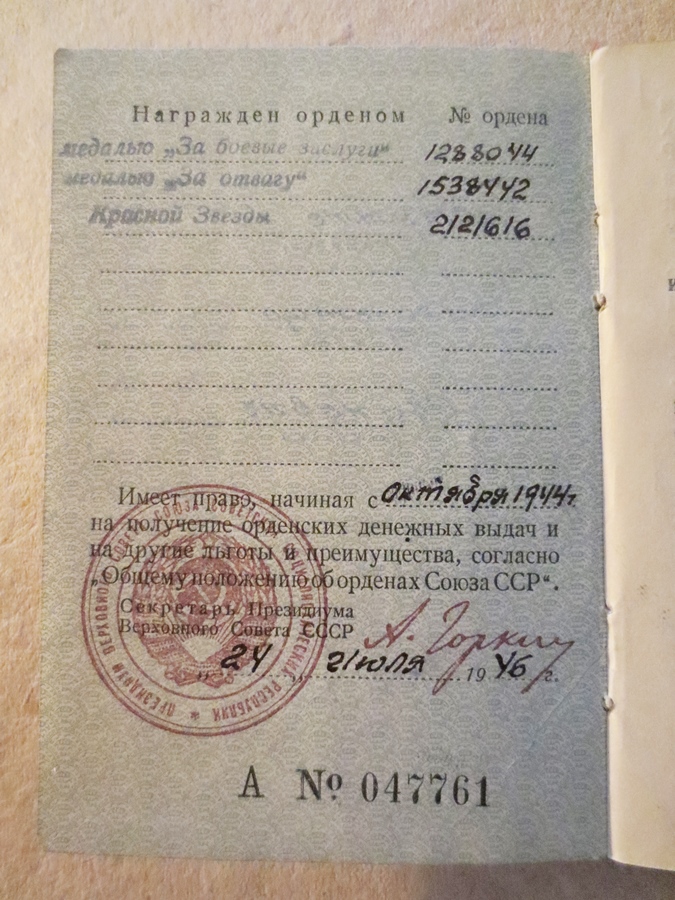 Награжден орденом № ордена
медалью „За боевые заслуги“ 1288044
медалью „За отвагу“ 1538442
Красной Звезды 2121616
Имеет право, начиная с октября 1944 г.
на получение орденских денежных выдач и
на другие льготы и преимущества, согласно
„Общему положению об орденах Союза ССР“.
Секретарь Президиума
Верховного Совета СССР А. Горкин
„24„ июля 1946 г.
ПРЕЗИДИУМ ВЕРХОВНОГО СОВЕТА СОЮЗА СОВЕТСКИХ СОЦИАЛИСТИЧЕСКИХ РЕСПУБЛИК
А № 047761